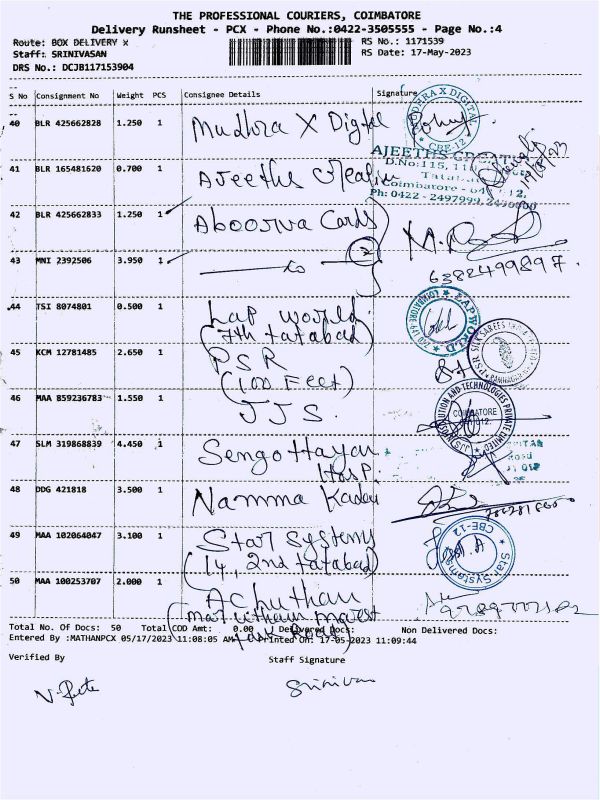 THE PROFESSIONAL COURIERS, COIMBATORE
Delivery Runsheet - PCX - Phone No.:0422-3505555 - Page No.:4
Route: BOX DELIVERY x
RS No.: 1171539
Staff: SRINIVASAN
RS Date: 17-May-2023
DRS No.: DCJB117153904
S No Consignment No Weight PCS Consignee Details Signature
40 BLR 425662828 1.250 1 Mudhra X Digital
MUDHRA X DIGITAL
CBE-12
41 BLR 165481620 0.700 1 Ajeeths creation
AJEETHS
D.No:115,
Tatabad
Coimbatore - 641 012.
Ph: 0422 - 2497999,
42 BLR 425662833 1.250 1 Aboorva Cards
43 MNI 2392506 3.950 1 do 2
6382499897.
44 TSI 8074801 0.500 1 Lap world
(7th tatabad)
LAPWORLD
COIMBATORE
45 KCM 12781485 2.650 1 PSR
(100 Feet)
46 MAA 859236783 1.550 1 JJS.
COIMBATORE
641 012.
47 SLM 319868839 4.450 1 Sengottayan
Hosp.
48 DDG 421818 3.500 1 Namma Kadai
49 MAA 102064047 3.100 1 Star Systems
(14, 2nd tatabad)
Star Systems
CBE-12
50 MAA 100253707 2.000 1 Achuthan
Total No. Of Docs: 50 Total COD Amt: 0.00 Delivered Docs: Non Delivered Docs:
Entered By :MATHANPCX 05/17/2023 11:08:05 AM Printed On: 17-05-2023 11:09:44
Verified By Staff Signature
Srinivasan